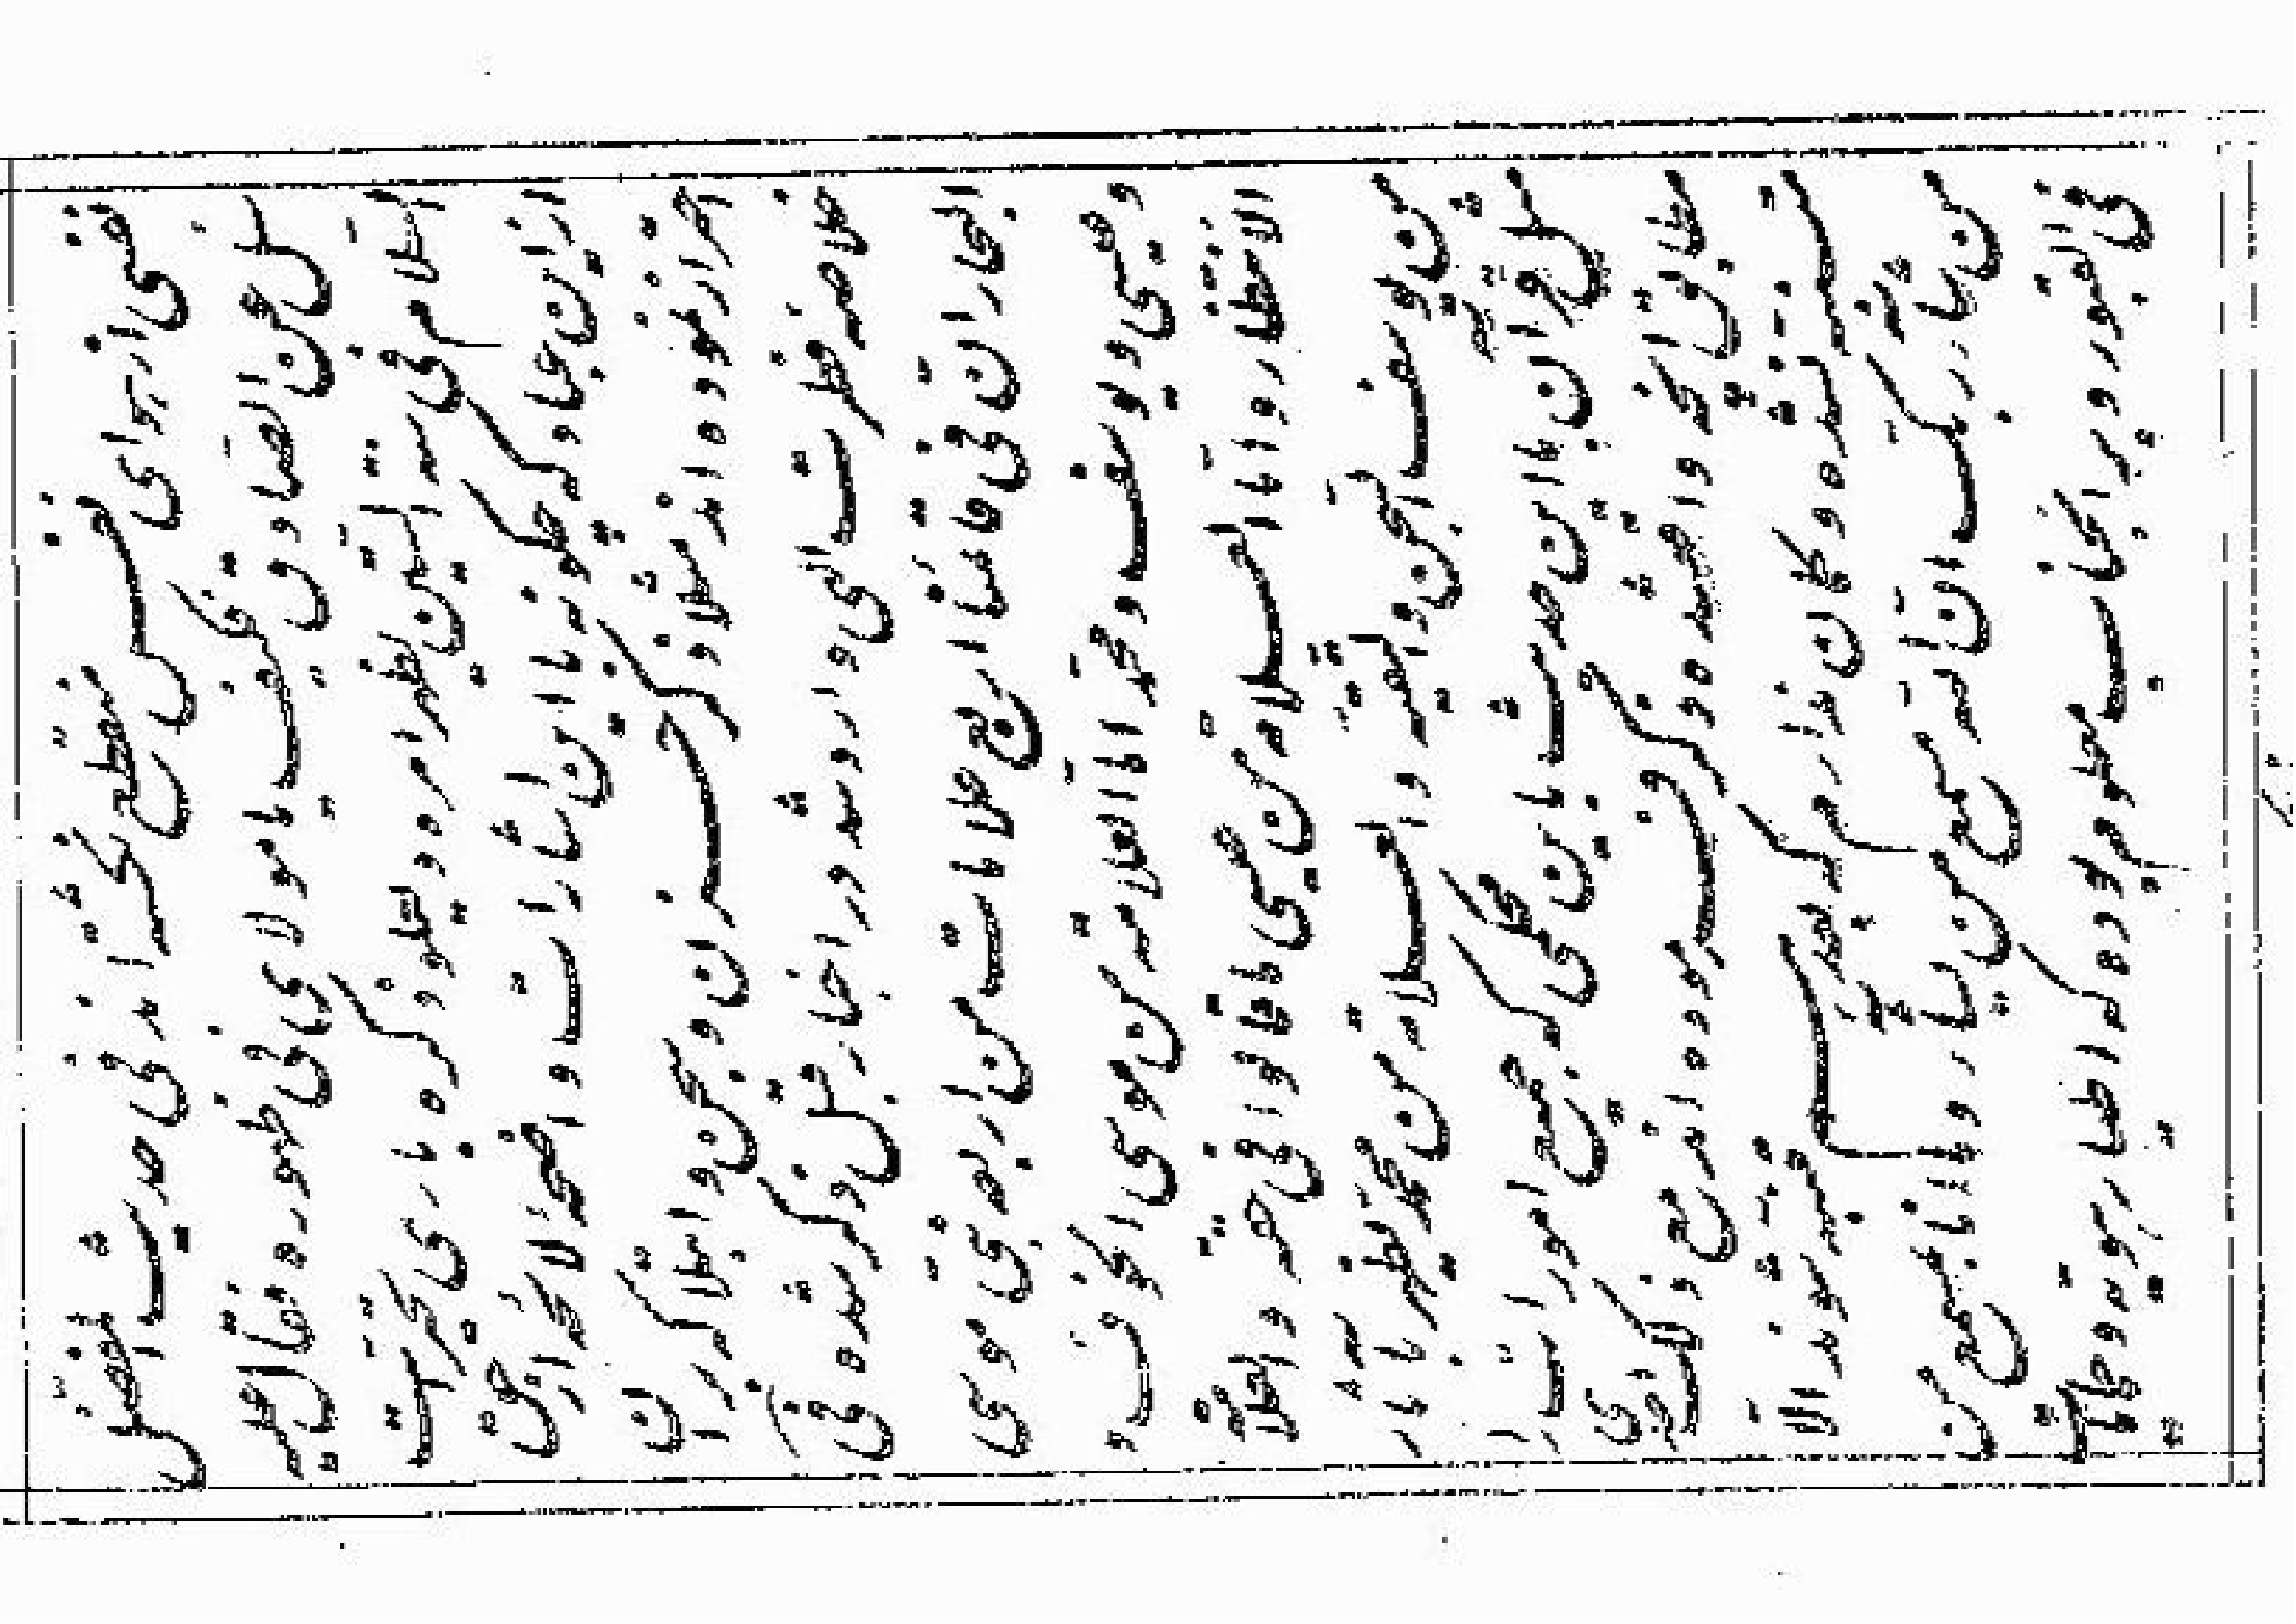 نفسی از هوای نفس منقطع نگشته‌اند فی حدیث المفضل
سئل عن الصادق فکیف یا مولای فی ظهوره فقال علیه
السلام فی سنة الستین یظهر امره و یعلو ذکره باری تحیر است
از این عباد که چگونه با این اشارات واضحهٔ لائحه از حق
احتراز نموده‌اند مثلا ذکر حزن و سجن و ابتلا که بر آن
خلاصهٔ فطرت الهی وارد شد در اخبار قبل ذکر شده فی
البحار ان فی قائمنا اربع علامات من اربعة نبی موسی
و عیسی و یوسف و محمد اما العلامة من موسی الخوف و
الانتظار و اما العلامة من عیسی ما قالوا فی حقه و العلامة
من یوسف السجن و التقیة و العلامة من محمد یظهر بآثار
مثل القرآن با این حدیث باین محکمی که جمیع امورات را
مطابق آنچه واقع شده ذکر فرموده‌اند مع ذلک احدی
متنبه نشده و گمان ندارم که بعد هم متنبه شوند الا
من شاء ربک ان الله مسمع من یشاء و ما انا بمسمع من
فی القبور و بر آنجناب معلوم بوده که اطیار هویه و حمامات